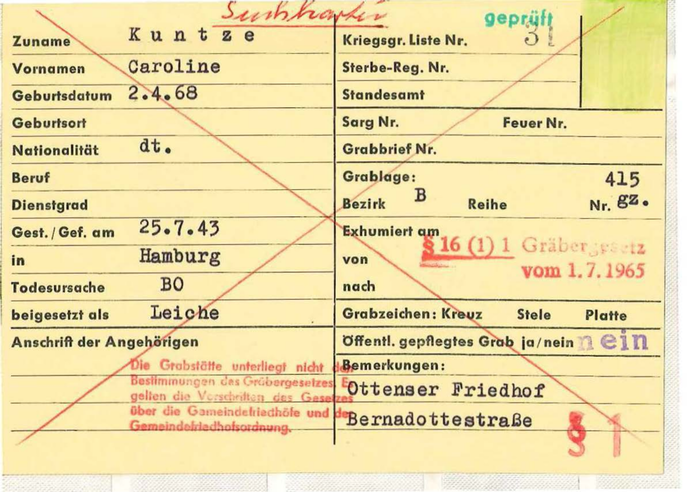 Suchkartei
geprüft
Zuname Kuntze
Kriegsgr. Liste Nr. 31
Vornamen Caroline
Sterbe-Reg. Nr.
Geburtsdatum 2.4.68
Standesamt
Geburtsort
Sarg Nr. Feuer Nr.
Nationalität dt.
Grabbrief Nr.
Beruf
Grablage: 415
Dienstgrad
Bezirk B Reihe Nr. gz.
Gest./Gef. am 25.7.43
Exhumiert am
§ 16 (1) 1 Gräbergesetz
in Hamburg
von
vom 1.7.1965
Todesursache BO
nach
beigesetzt als Leiche
Grabzeichen: Kreuz Stele Platte
Anschrift der Angehörigen
Öffentl. gepflegtes Grab ja/nein nein
Die Grabstätte unterliegt nicht den
Bestimmungen des Gräbergesetzes. Es
gelten die Vorschriften des Gesetzes
über die Gemeindefriedhöfe und der
Gemeindefriedhofsordnung.
Bemerkungen:
Ottenser Friedhof
Bernadottestraße
§ 1